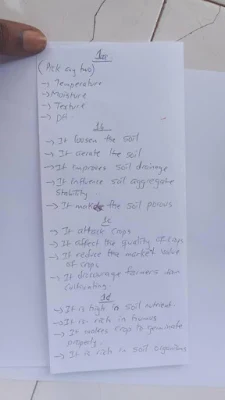 1a
(Pick any two)
→ Temperature
→ Moisture
→ Texture
→ pH
1b
→ It loosen the soil
→ It aerate the soil
→ It improves soil drainage
→ It influence soil aggregate
stability
→ It makes the soil porous
1c
→ It attack crops
→ It affect the quality of crops
→ It reduce the market value
of crops
→ It discourage farmers from
cultivating.
1d
→ It is high in soil nutrient.
→ It is rich in humus
→ It makes crops to germinate
properly.
→ It is rich in soil organisms